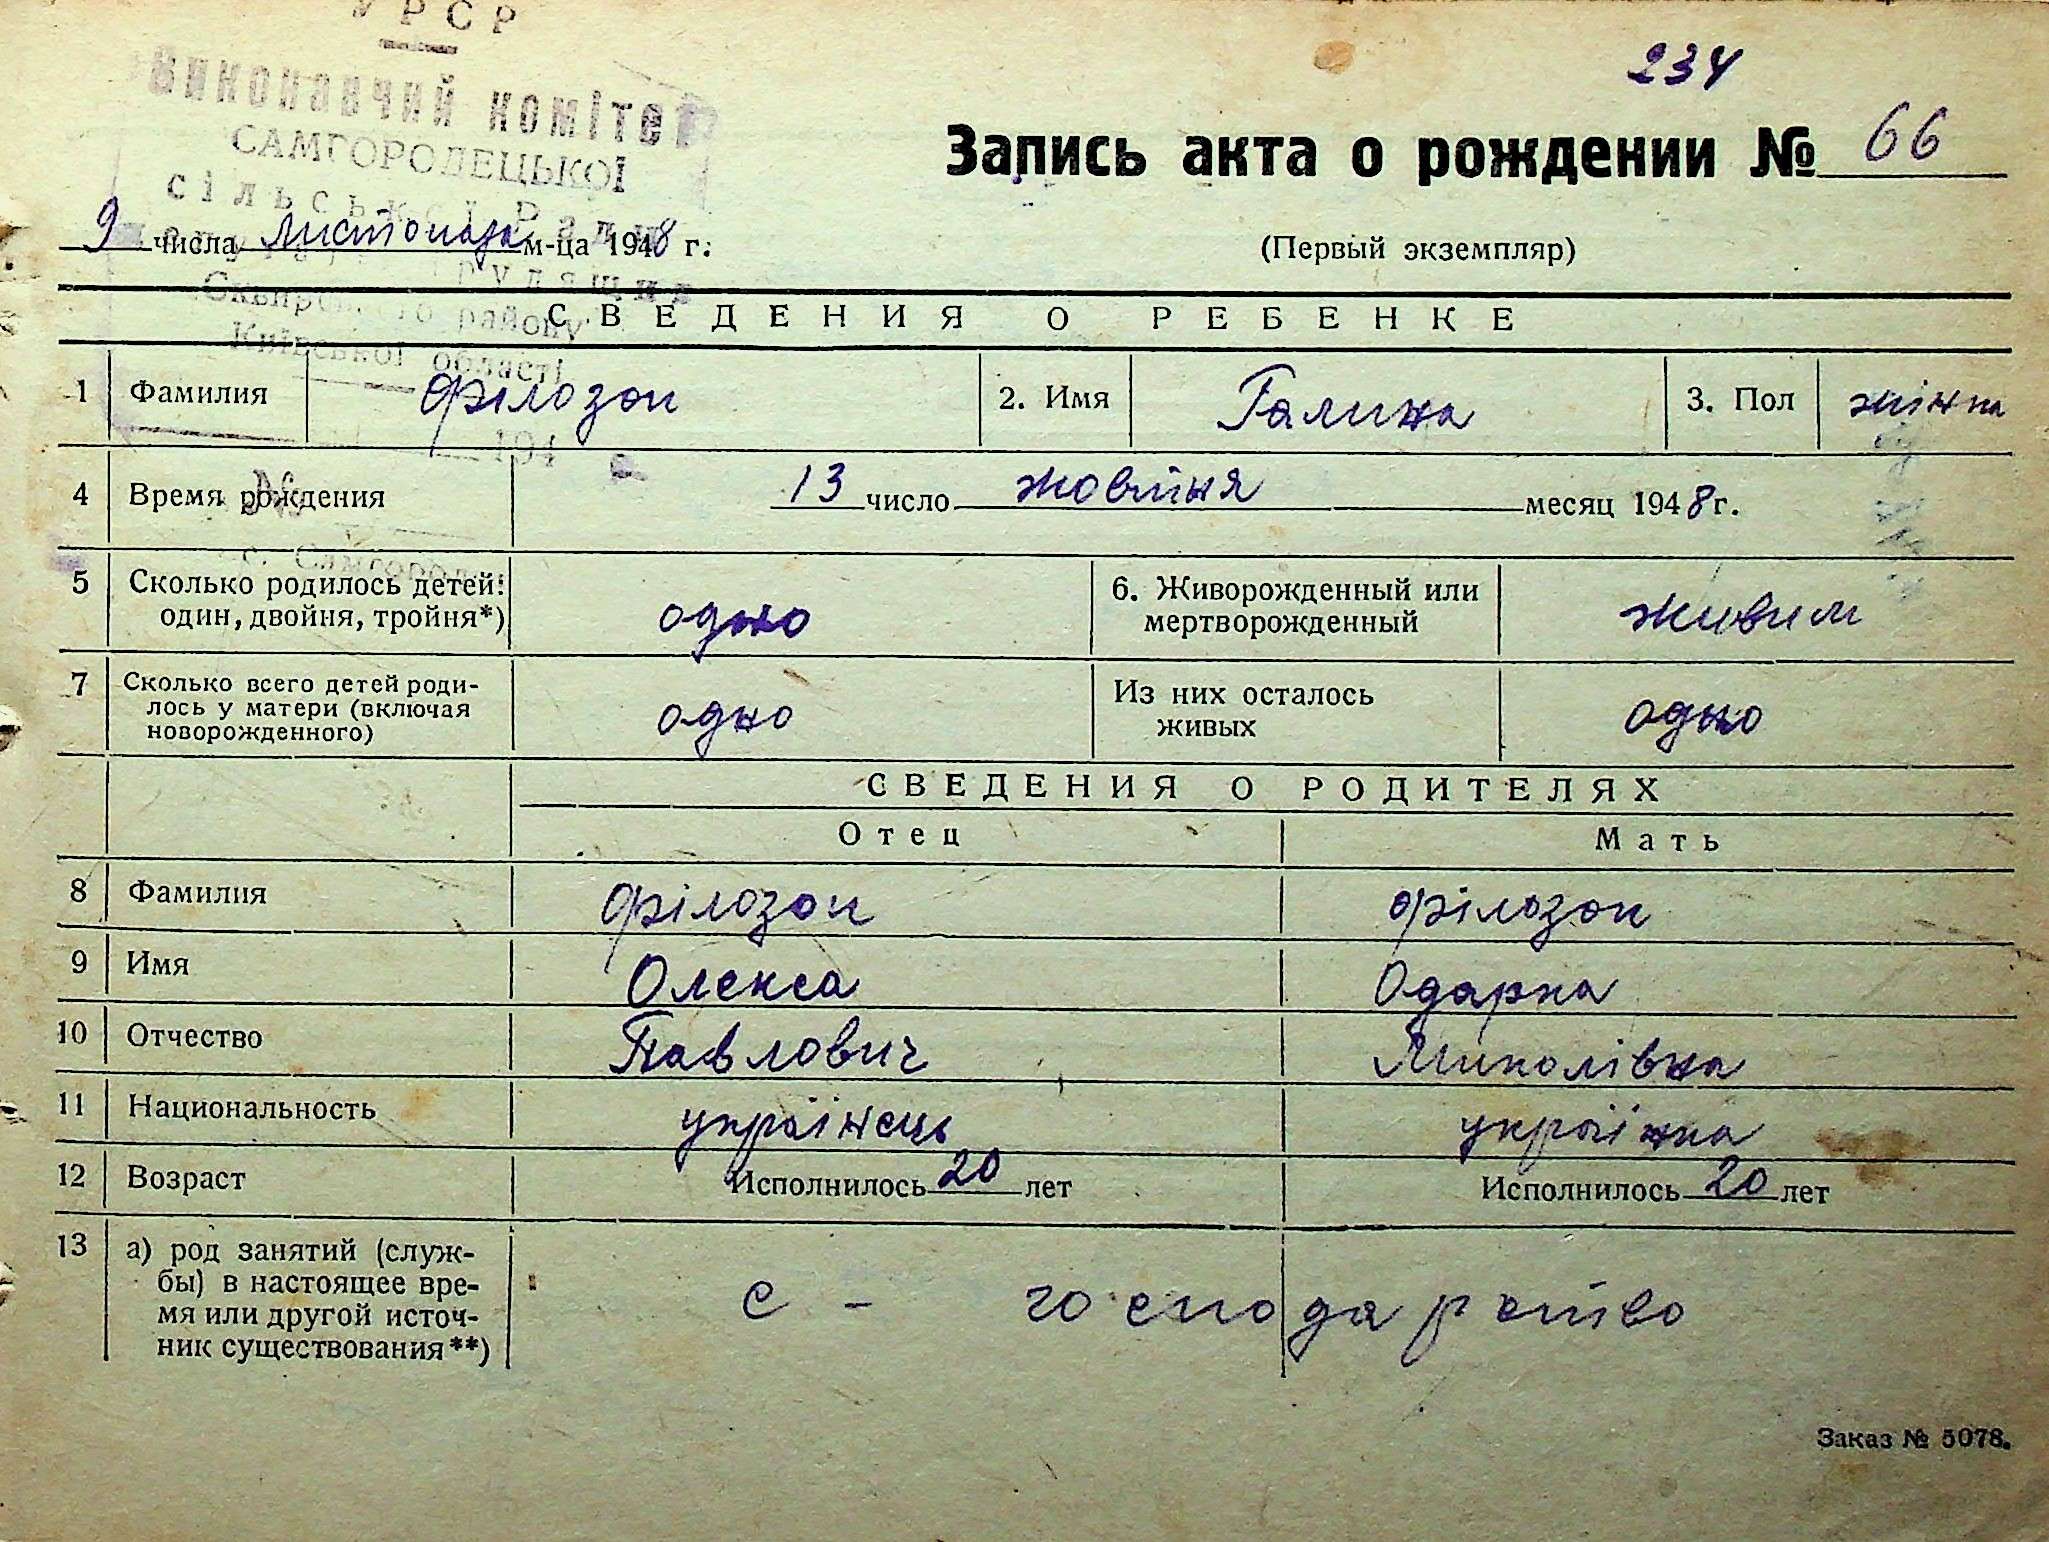 УРСР
234
Виконавчий комітет
САМГОРОДЕЦЬКОЇ
сільської Ради
Запись акта о рождении № 66
9 числа листопада м-ца 1948 г.
(Первый экземпляр)
Сквирського району
Київської області
СВЕДЕНИЯ О РЕБЕНКЕ
1 Фамилия Філозоп 2. Имя Галина 3. Пол жінка
194
4 Время рождения 13 число жовтня месяц 1948 г.
№
с. Самгородок
5 Сколько родилось детей: один, двойня, тройня*) одно 6. Живорожденный или мертворожденный живим
7 Сколько всего детей родилось у матери (включая новорожденного) одно Из них осталось живых одно
СВЕДЕНИЯ О РОДИТЕЛЯХ
Отец Мать
8 Фамилия Філозоп Філозоп
9 Имя Олекса Одарка
10 Отчество Павлович Миколівна
11 Национальность українець українка
12 Возраст Исполнилось 20 лет Исполнилось 20 лет
13 а) род занятий (службы) в настоящее время или другой источник существования**) с - господарство
Заказ № 5078.